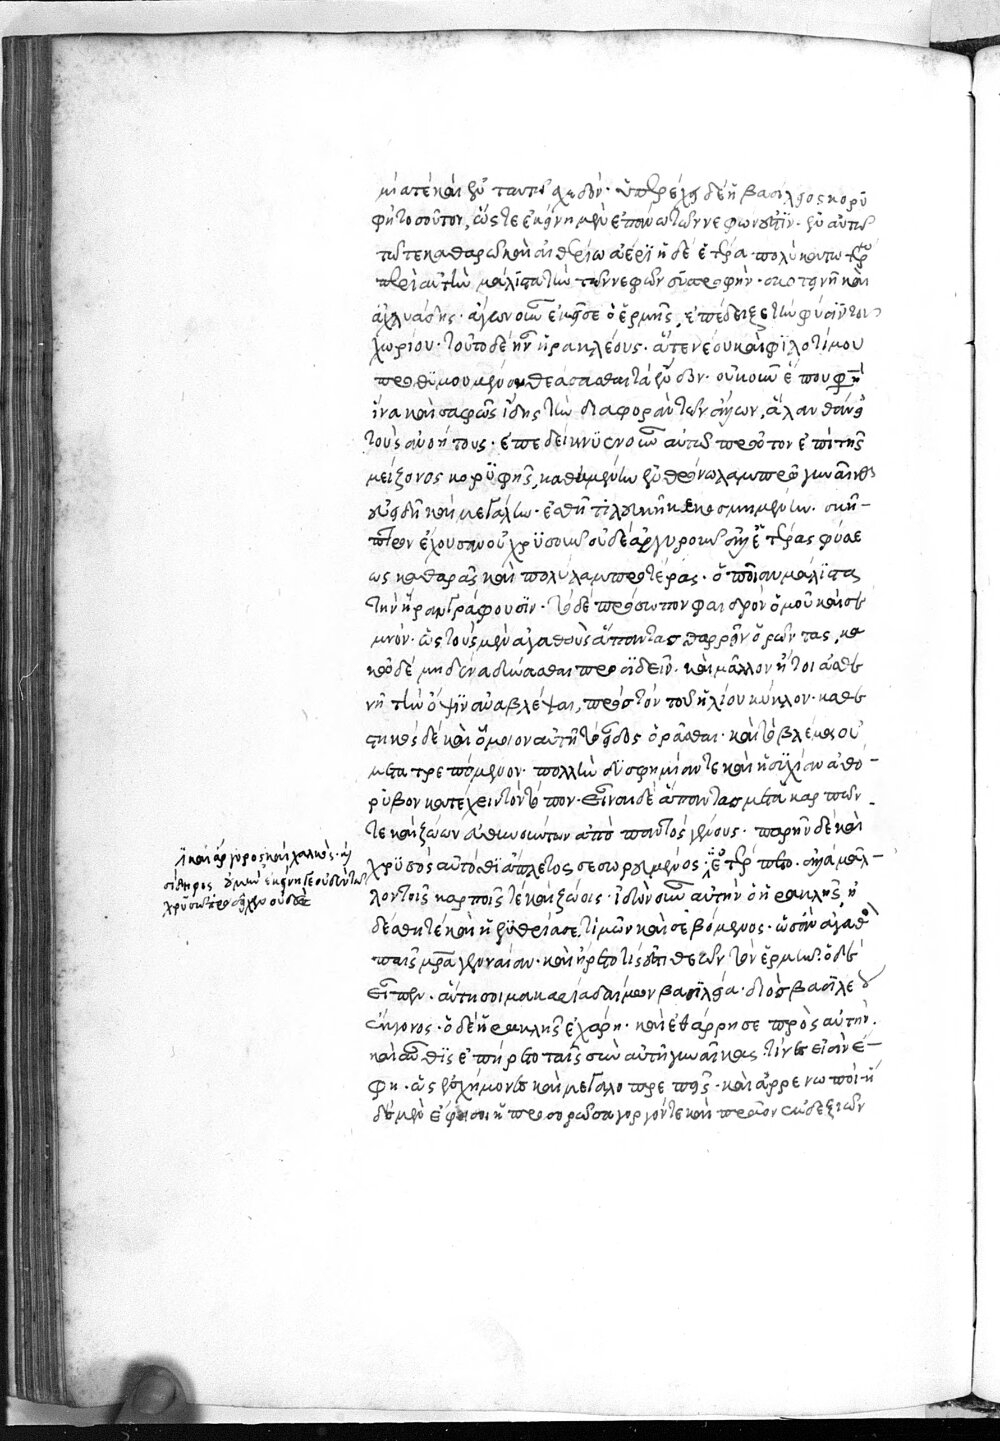 μιᾶ τε καὶ ξυ παντὶ σχεδόν· ὑπερεῖχε δὲ ἡ βασίλειος κορυ
φὴ τοσοῦτον, ὥστε ἐκείνη μὲν ἐπάνω τῶν νεφῶν ἐστὶν· ἐν αὐτῶ
τῶ τε καθαρῶ καὶ αἰθρίω ἀέρϊ ἡ δὲ ἑτέρα πολὺ κατωτέρω
περὶ αὐτὴν μάλϊστα τὴν τῶν νεφῶν συστροφὴν· σκοτεινὴ καὶ
ἀχλυώδης· ἀγαγὼν οὖν ἐκεῖσε ὁ ἑρμῆς, ἐπέδειξε τὴν φύσϊν τοῦ
χωρίου· τοῦ δὲ ἡρακλέους· ἅτε νέου καὶ φϊλοτίμου
προθϋμουμένου θεάσασθαι τὰ ἔνδον· οὐκοῦν ἕπου φησὶν
ἵνα καὶ σαφῶς ἴδης τὴν διαφορὰν τῶν ἄλλων, ἃ λανθάνει
τοὺς ἀνοήτους· ἐπεδείκνϋεν οὖν αὐτῶ πρῶτον ἐπὶ τῆς
μείζονος κορϋφῆς, καθημένην ἐν θρόνω λαμπρῶ γυναῖκα
εὐειδῆ καὶ μεγάλην· ἐσθῆτι λευκῆ κεκοσμημένην· σκῆ-
πτρον ἔχουσαν οὐ χρϋσοῦν οὐδὲ ἀργυροῦν ἀλλ' ἑτέρας φύσε
ως καθαρᾶς καὶ πολὺ λαμπροτέρας· ὁποίαν μάλϊστα
τὴν ἥραν γράφουσϊν· τὸ δὲ πρόσωπον φαιδρὸν ὁμοῦ καὶ σε
μνὸν· ὡς τοὺς μὲν ἀγαθοὺς ἅπαντας θαρρεῖν ὁρῶντας, κα
κὸν δὲ μηδένα δύνασθαι προσϊδεῖν· καὶ μᾶλλον ἢ τοι ἀσθε
νῆ τὴν ὄψϊν ἀναβλέψαι, πρὸς τὸν τοῦ ἡλίου κύκλον· καθε
στηκὸς δὲ καὶ ὅμοιον αὐτῆ τὸ εἶδος ὁρᾶσθαι· καὶ τὸ βλέμμα οὐ
μετατρεπόμενον· πολλὴν δὲ εὐφημίαν τε καὶ ἡσϋχίαν ἀθό-
ρϋβον κατέχειν τὸν τόπον· εἶναι δὲ ἅπαντα μεστὰ καρπῶν
τε καὶ ζώων εὐθηνούντων ἀπὸ παντὸς γένους· παρῆν δὲ καὶ
χρϋσὸς αὐτόθϊ ἄπλετος σεσωρευμένος· ἑτέρπετο· ἀλλὰ μᾶλ-
λον τοῖς καρποῖς τὲ καὶ ζώοις· ἰδὼν οὖν αὐτὴν ὁ ἡρακλῆς, ἠ
δέσθη τε καὶ ἠρυθρίασε, τιμῶν καὶ σεβόμενος· ὡς ἂν ἀγαθὸς
παῖς μητέρα γενναίαν· καὶ ἤρετο τίς ἐστι θεῶν τὸν ἑρμῆν. ὁ δὲ
εἶπεν· αὕτη σοι μακαρία δαίμων βασϊλεία· διὸς βασϊλέως
ἔκγονος· ὁ δὲ ἡρακλῆς ἐχάρη· καὶ ἐθάρρησε πρὸς αὐτήν·
καὶ αὖθϊς ἐπήρετο τὰς σὺν αὐτῆ γυναῖκας τίνες εἰσὶν ἔ-
φη· ὡς εὐσχήμονες καὶ μεγαλοπρεπεῖς· καὶ ἀρρενωποί· ἥ
δε μὲν ἔφη σοι ἡ προσορῶσα γοργόν τε καὶ πρᾶον ἐκ δεξιῶν
ἦ καὶ ἄργυρος καὶ χαλκὸς· καὶ
σίδηρος ὁ μὲν ἐκείνη γε οὐδὲν τῶ
χρϋσῶ προσεῖχεν οὐδὲ